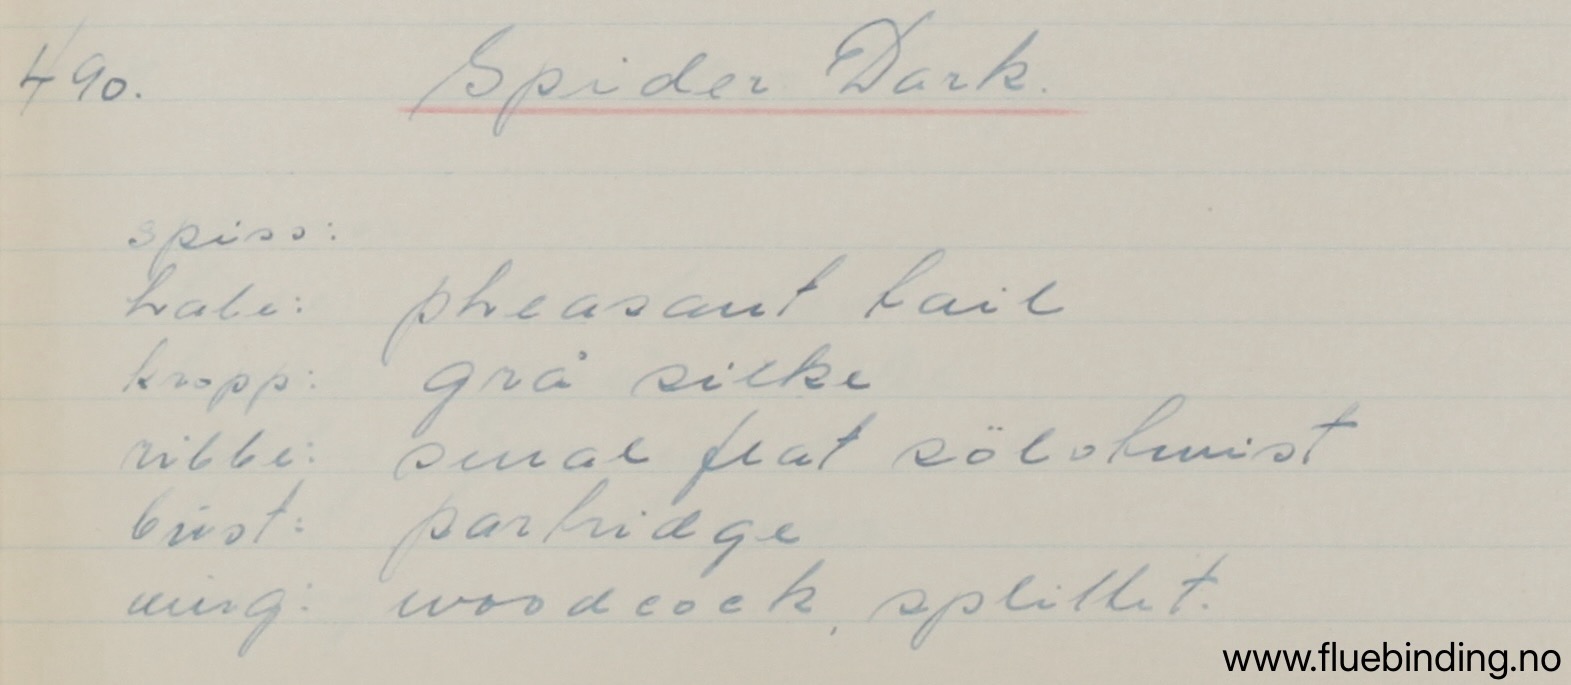 490. Spider Dark.
spiss:
hale: pheasant tail
kropp: grå silke
ribbe: smal flat sölvtwist
büst: partridge
ving: woodcock, splittet.
www.fluebinding.no